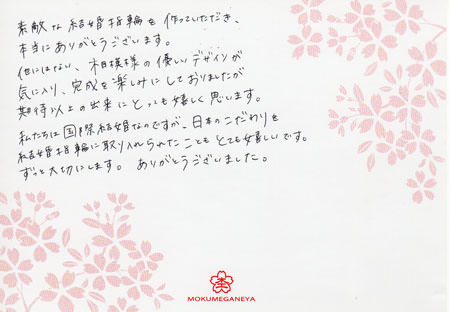 素敵な結婚指輪を作っていただき、
本当にありがとうございます。
他にはない、木目模様の優しいデザインが
気に入り、完成を楽しみにしておりましたが
期待以上の出来にとっても嬉しく思います。
私たちは国際結婚なのですが、日本のこだわりを
結婚指輪に取り入れられたこともとても嬉しいです。
ずっと大切にします。ありがとうございました。
MOKUMEGANEYA